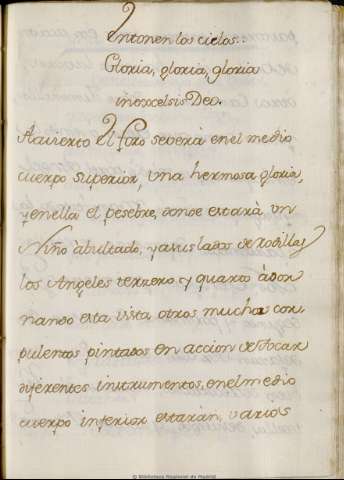 Entonen los cielos..
Gloria, gloria, gloria
inexcelsis Deo.
Aavierto el foro severà enel medio
cuerpo superior, una hermosa gloria,
yenella el pesebre, donde estarà un
Niño abultado, yasus lados de rodillas
los Angeles terzero y quarto àdor
nando esta vista otros muchos cor
pulentos pintados en accion de tocar
diferentes instrumentos, enel medio
cuerpo inferior estaràn, varios
© Biblioteca Nacional de Madrid